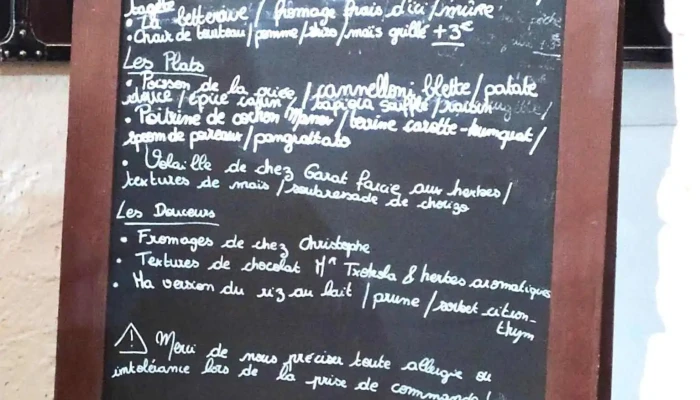 bagète
• La betterave / fromage frais d'ici / mûre
• Chair de tourteau / pomme / shiso / maïs grillé +3€
Les Plats
• Poisson de la criée / cannelloni blette / patate
douce / épice cajun / tapioca soufflé /
• Poitrine de cochon Manex / terrine carotte-kumquat /
spoom de poireaux / pangrattato
• Volaille de chez Garat farcie aux herbes /
textures de maïs / soubressade de chorizo
Les Douceurs
• Fromages de chez Christophe
• Textures de chocolat Mon Txokola & herbes aromatiques
• Ma version du riz au lait / prune / sorbet citron-
thym
⚠ Merci de nous préciser toute allergie ou
intolérance lors de la prise de commande !